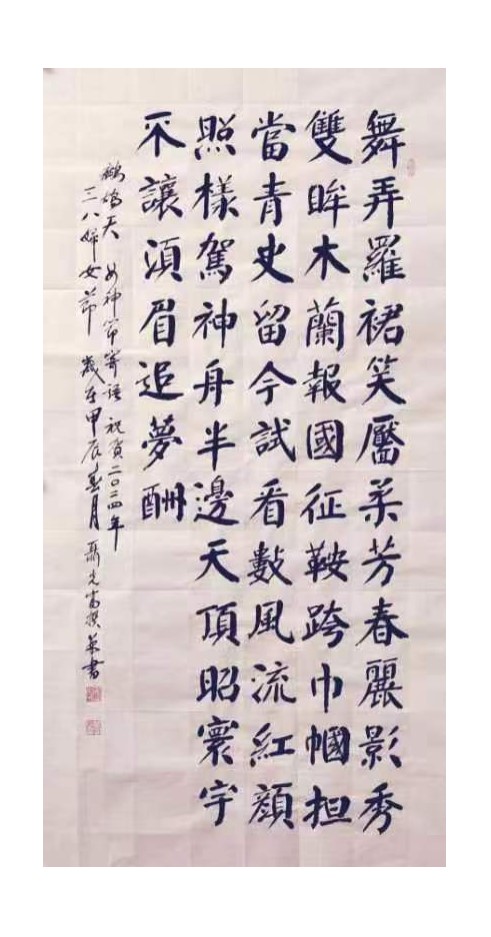 舞弄羅裙笑靨柔芳春麗影秀
雙眸木蘭報國征鞍跨巾幗担
當青史留今試看數風流紅顔
照樣駕神舟半邊天頂昭寰宇
不讓須眉追夢酬
鷓鴣天 女神節寄語 祝賀二〇二四年
三八婦女節 歲在甲辰春月 聶光富撰并書